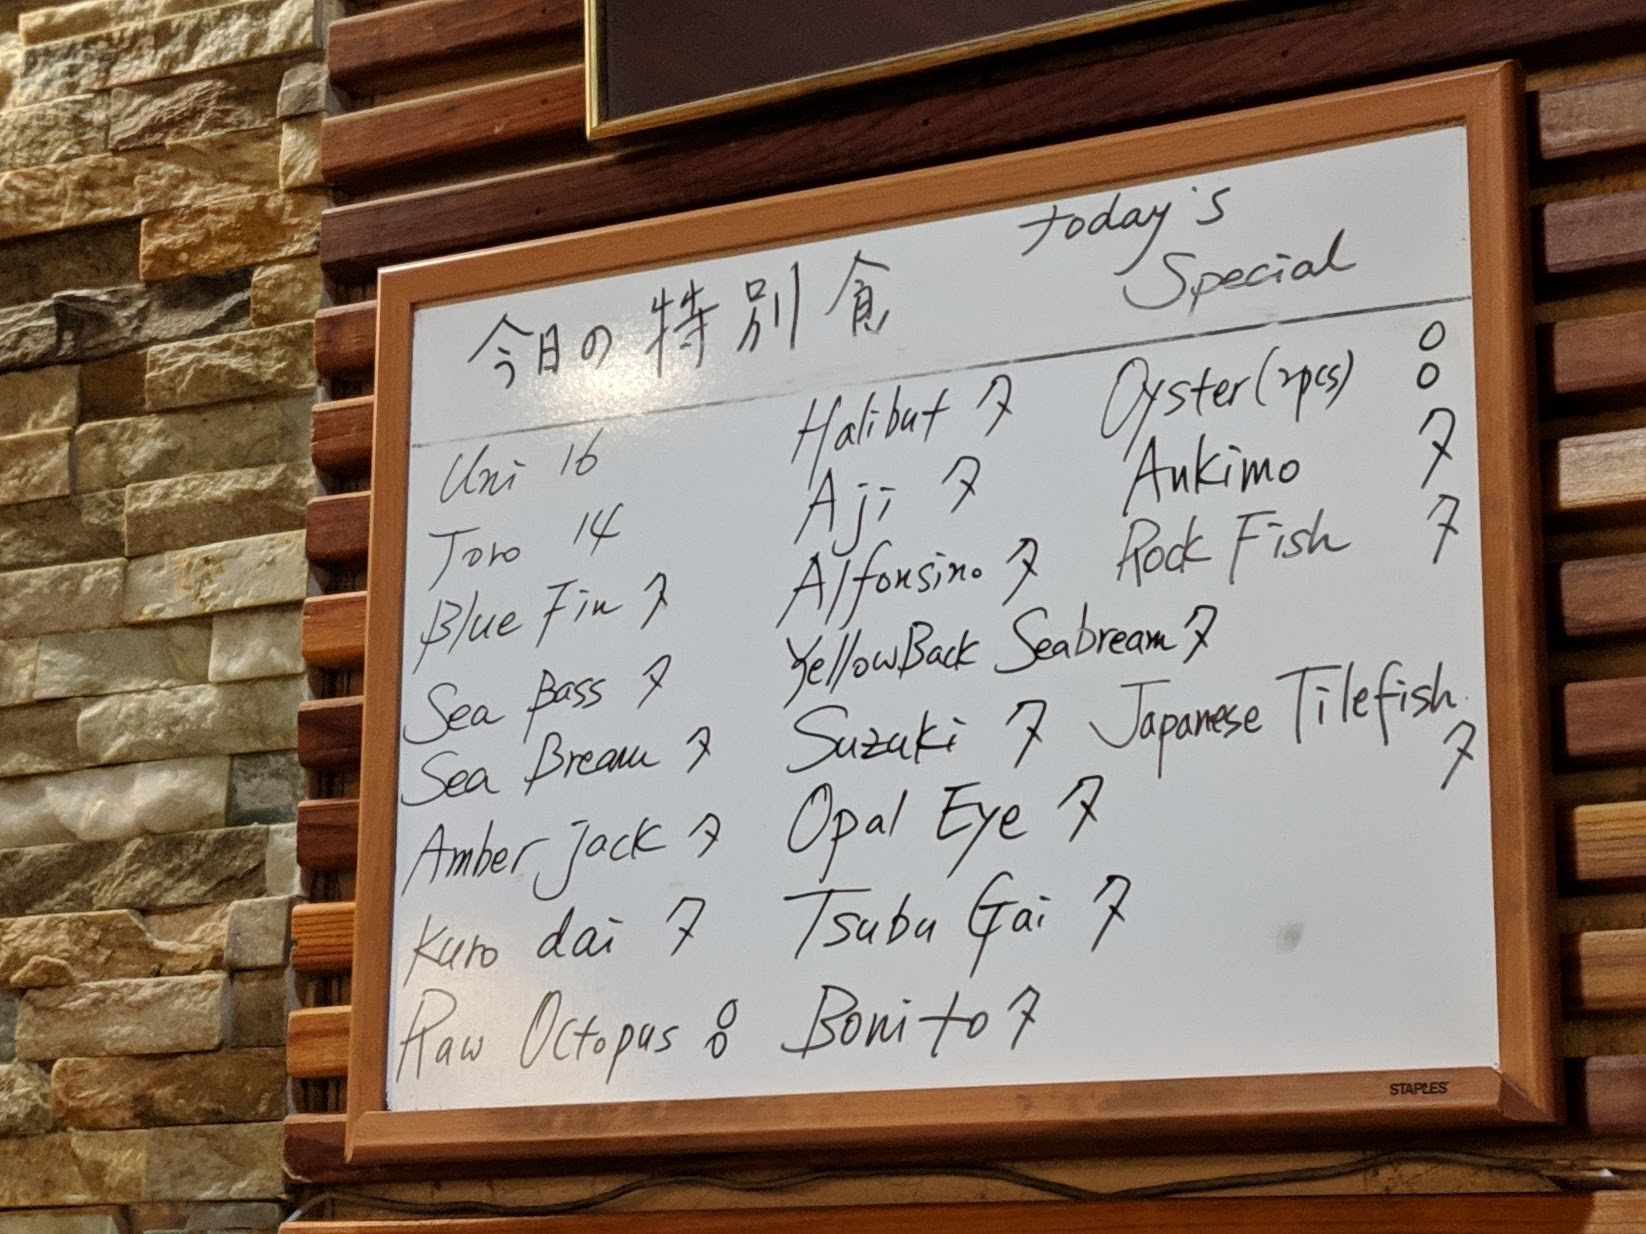 今日の特別食
today's
Special
Uni 16
Toro 14
Blue Fin 7
Sea Bass 7
Sea Bream 7
Amber jack 7
Kuro dai 7
Raw Octopus 8
Halibut 7
Aji 7
Alfonsino 7
YellowBack Seabream 7
Suzuki 7
Opal Eye 7
Tsubu Gai 7
Bonito 7
Oyster (2pcs) 8
Ankimo 7
Rock Fish 7
Japanese Tilefish
7
STAPLES